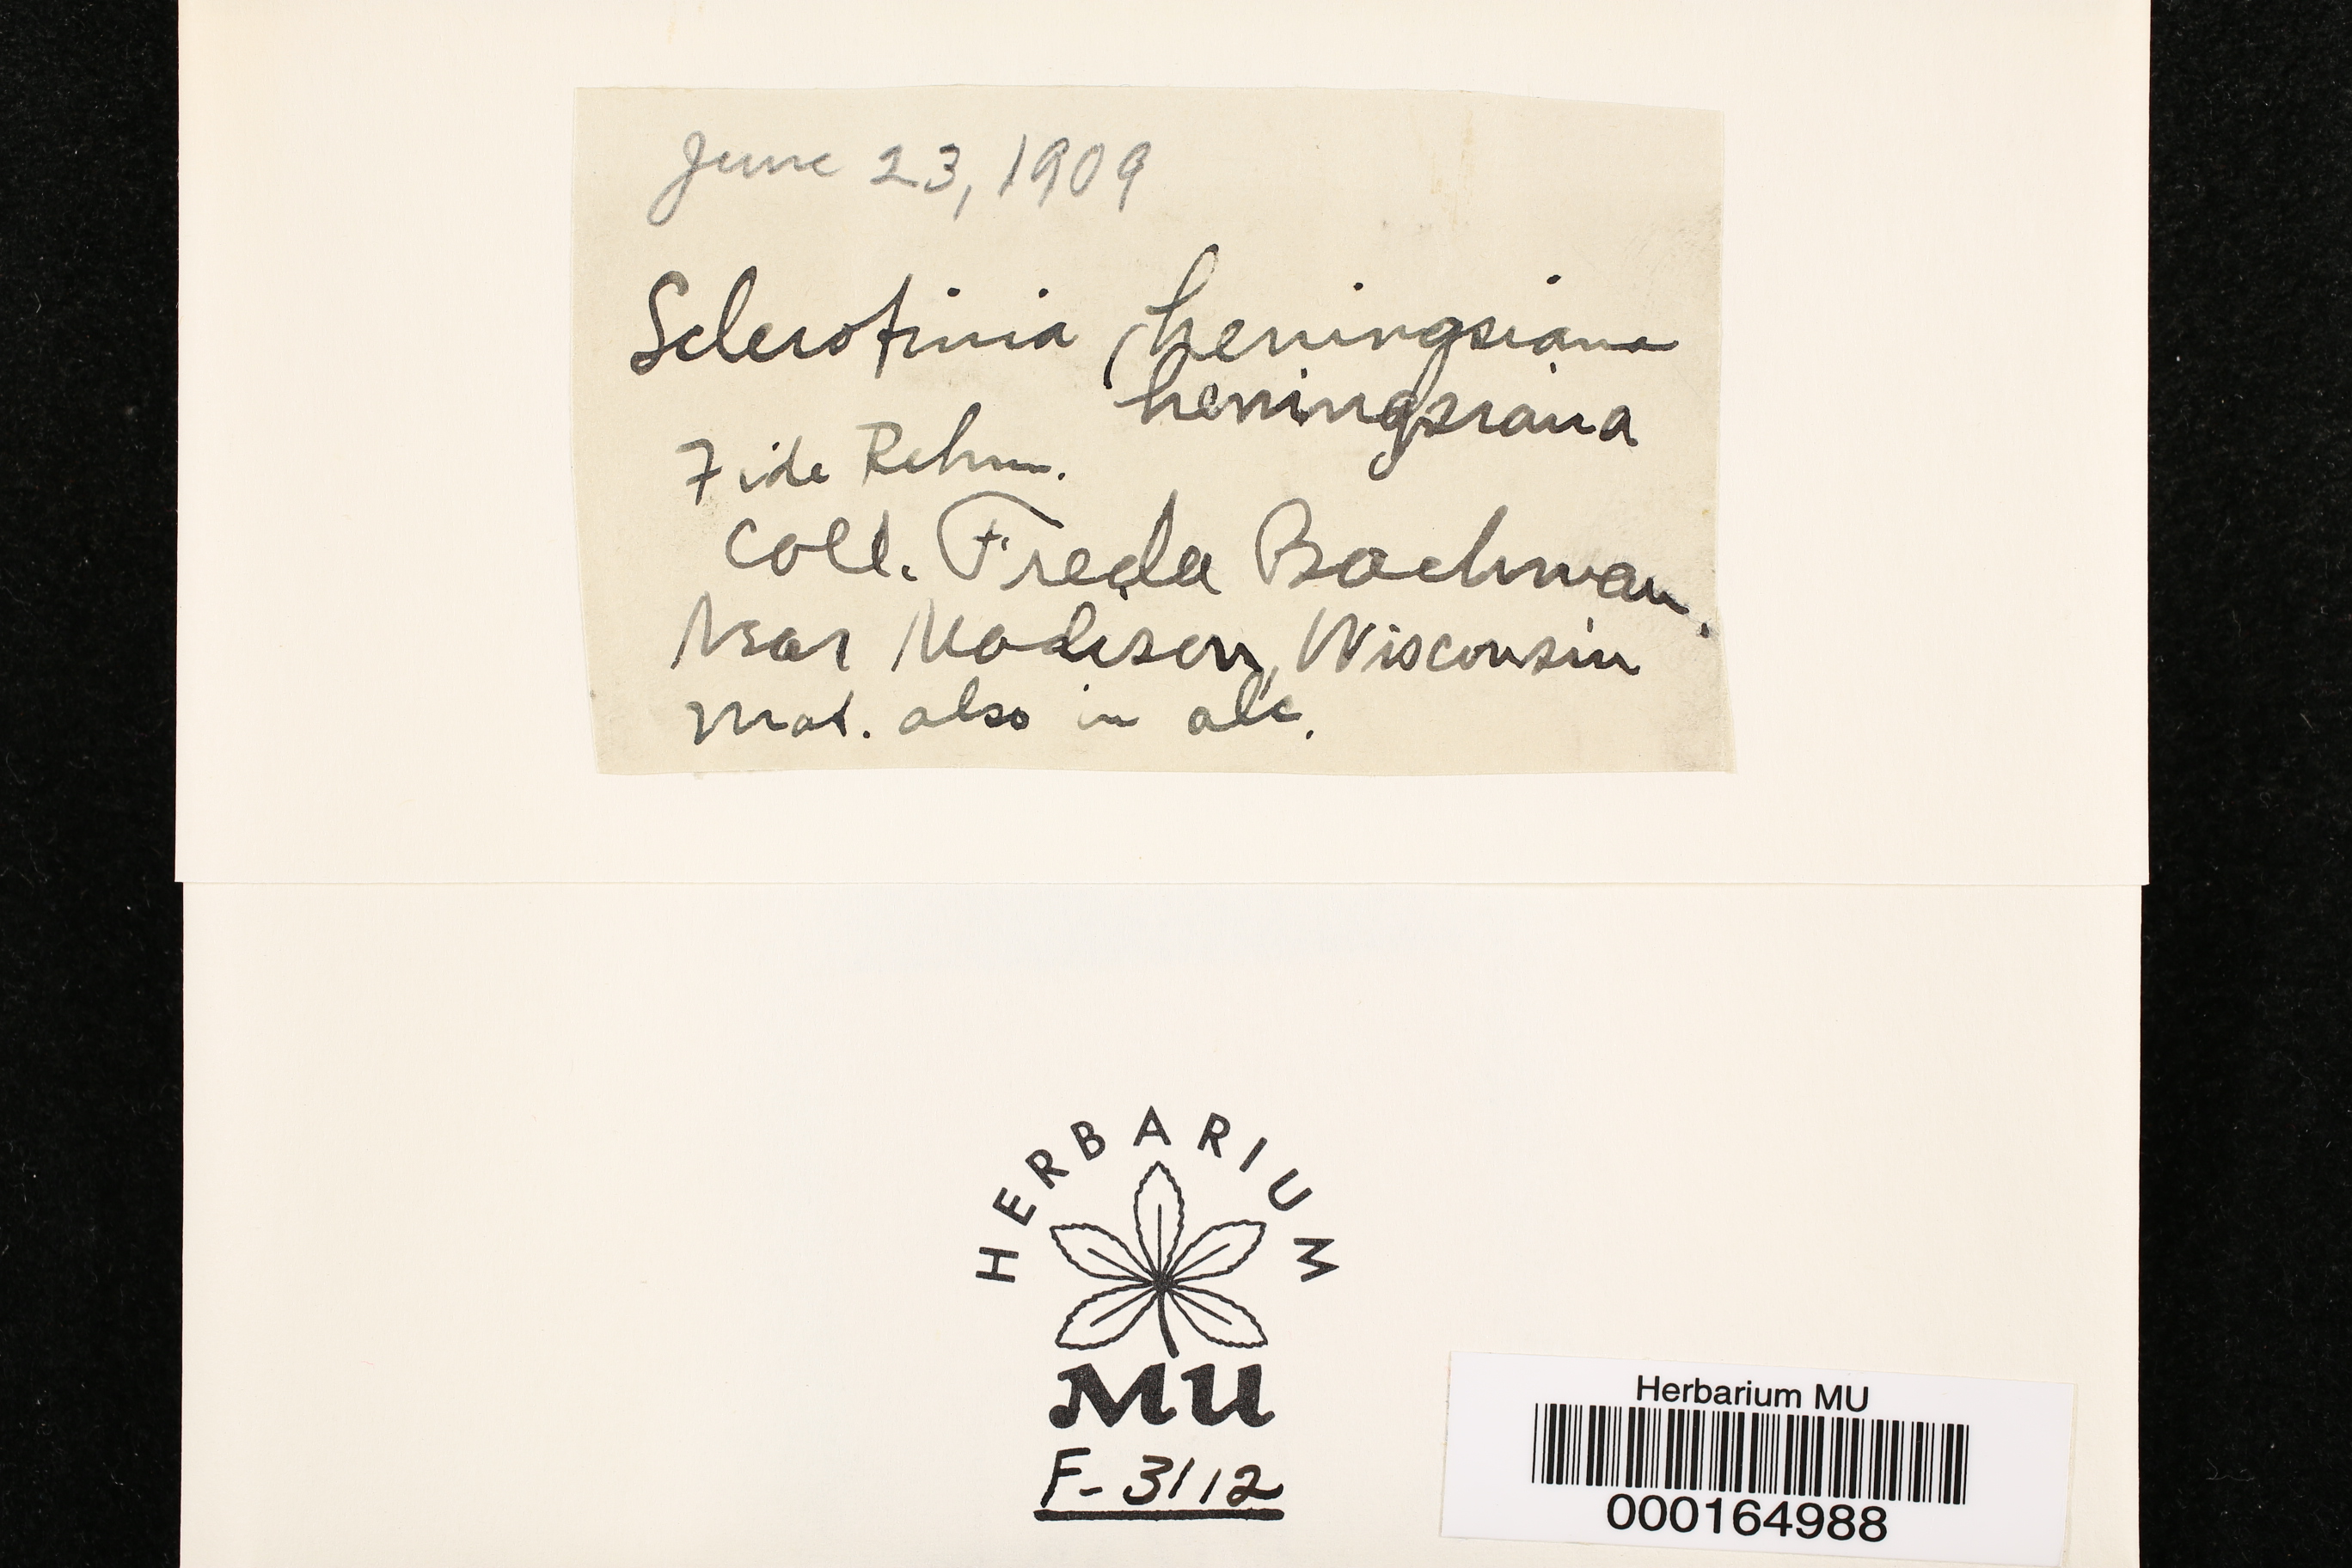 June 23, 1909
Sclerotinia (heningsiana
heningsiana
Fide Rehm.
Coll. Freda Bachman.
Near Madison, Wisconsin
Mat. also in alc.
HERBARIUM
MU
F-3112
Herbarium MU
000164988